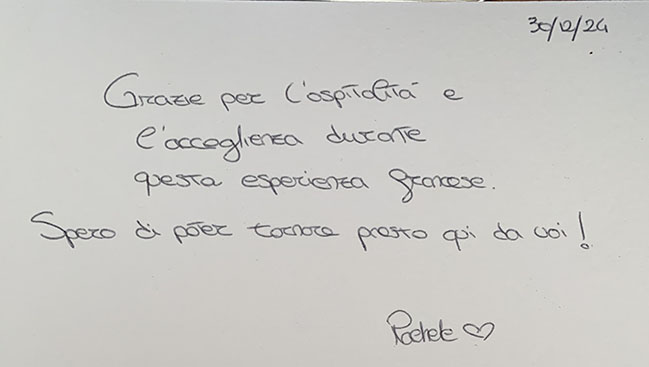 30/12/24
Grazie per l'ospitalità e
l'acceglienza durate
questa esperienza francese.
Spero di poter tornare presto qui da voi!
Rachele ♡